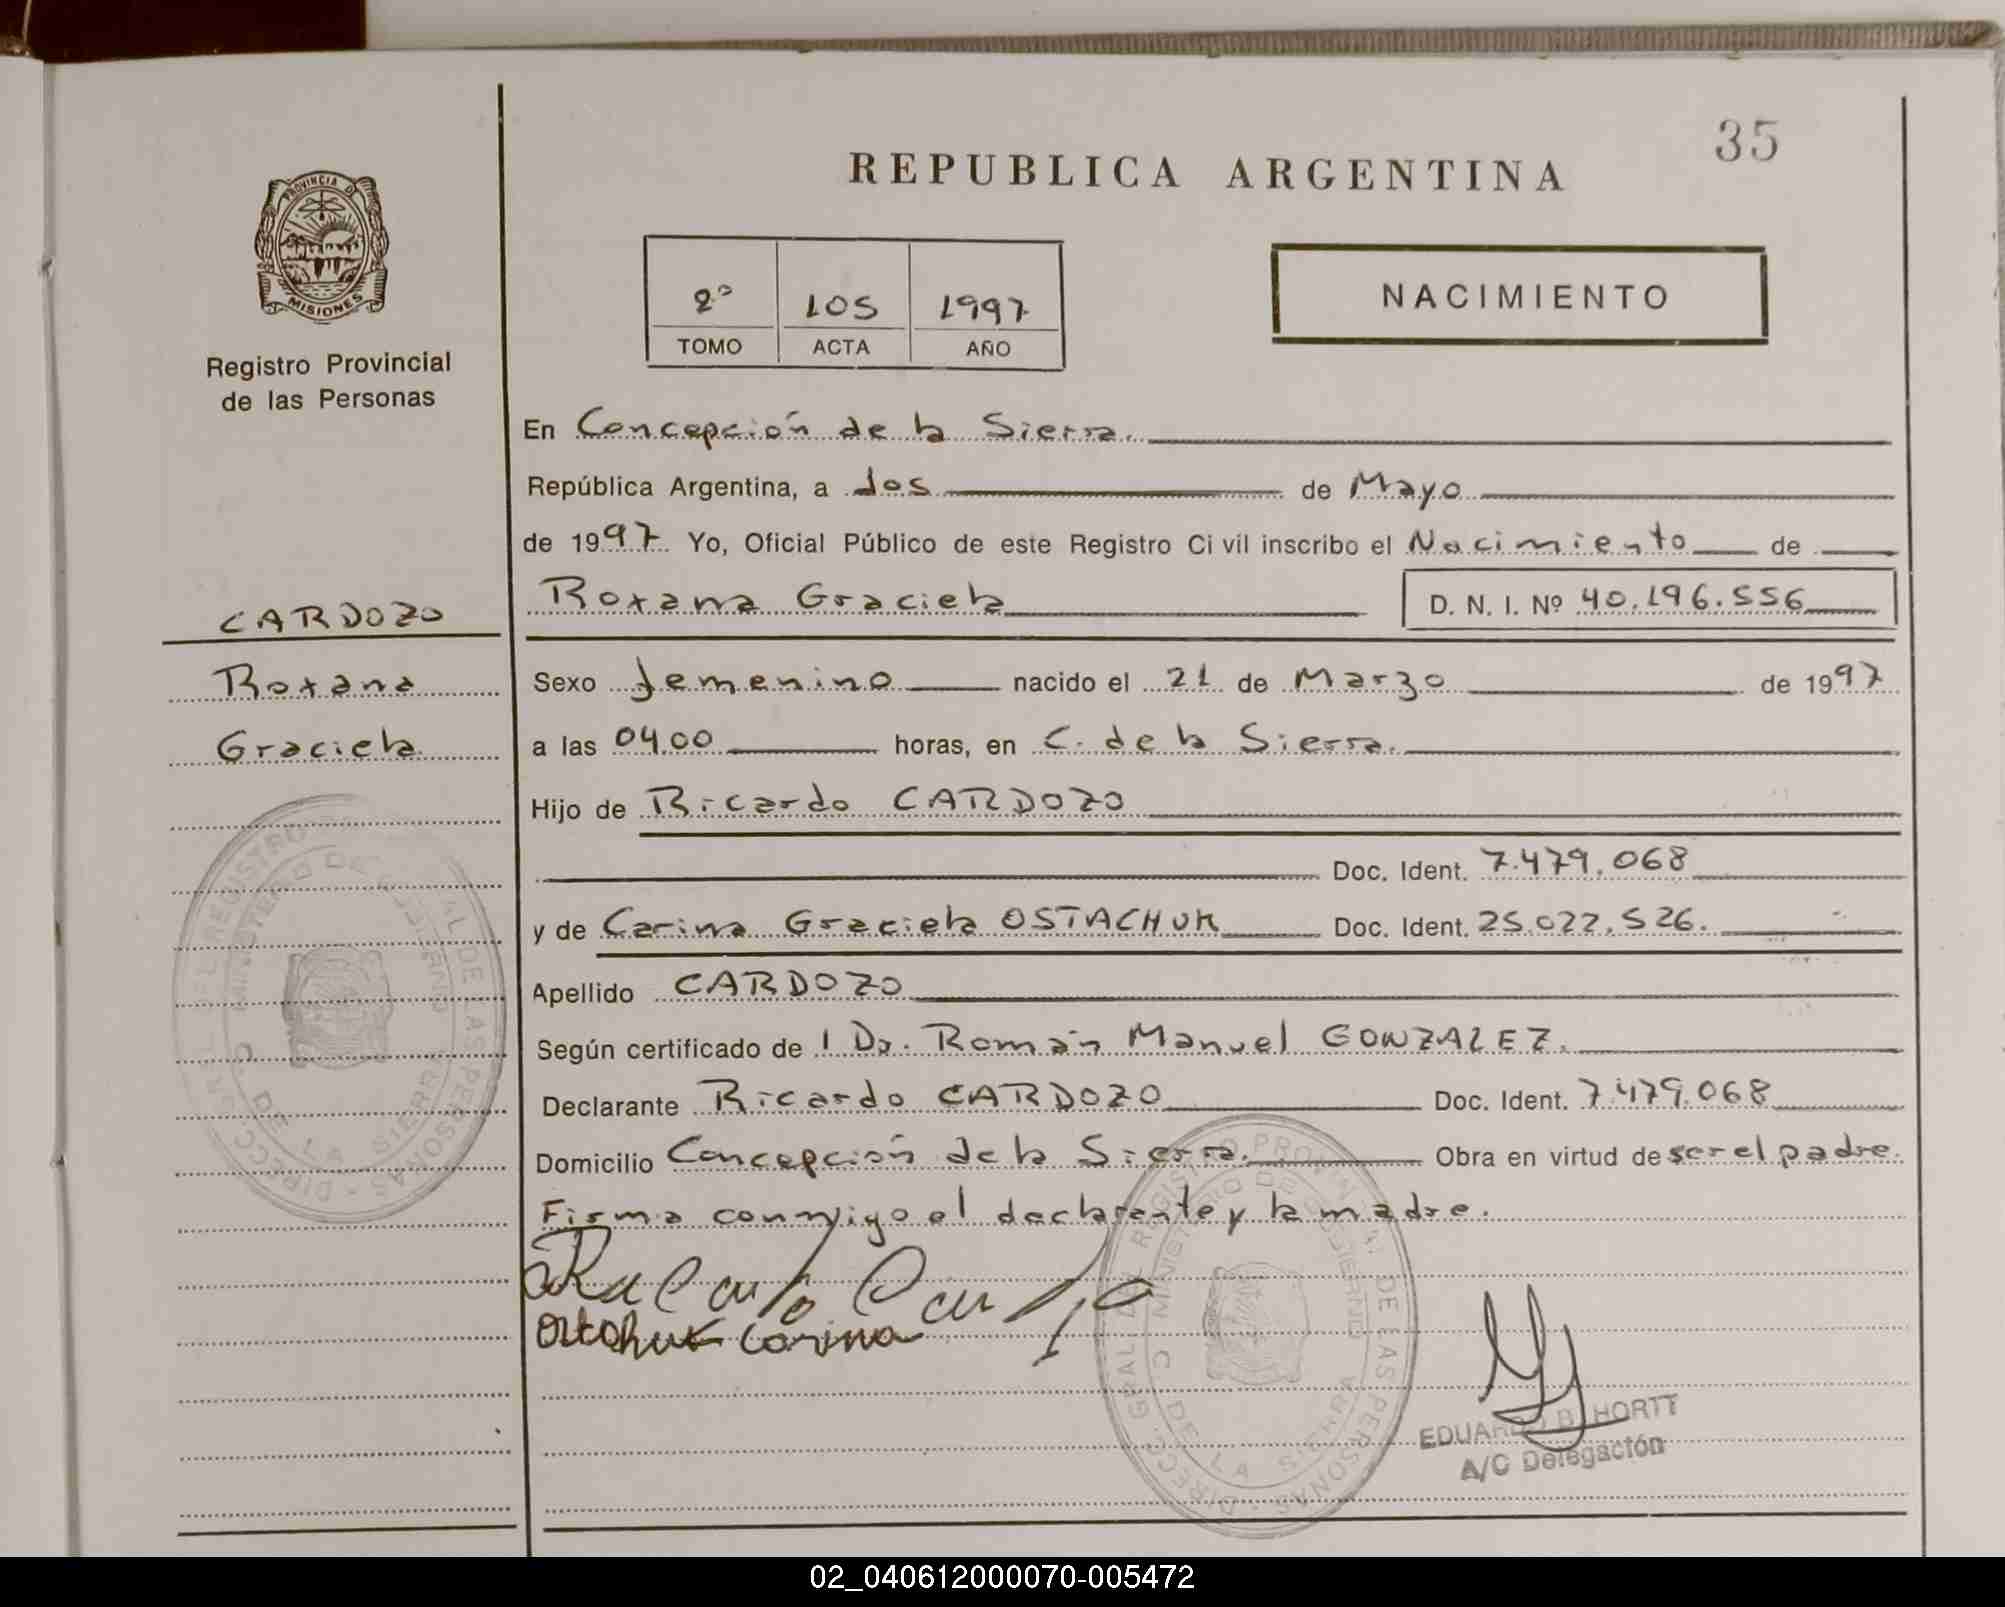 35
REPUBLICA ARGENTINA
PROVINCIA DE
MISIONES
Registro Provincial
de las Personas
2º 105 1997
TOMO ACTA AÑO
NACIMIENTO
En Concepción de la Sierra.
República Argentina, a dos de Mayo
de 1997 Yo, Oficial Público de este Registro Civil inscribo el Nacimiento de
Roxana Graciela D. N. I. Nº 40.196.556
CARDOZO
Roxana
Graciela
Sexo femenino nacido el 21 de Marzo de 1997
a las 04.00 horas, en C. de la Sierra.
Hijo de Ricardo CARDOZO
Doc. Ident. 7.479.068
y de Carina Graciela OSTACHUK Doc. Ident. 25.022.526.
Apellido CARDOZO
Según certificado de 1 Dr. Román Manuel GONZALEZ.
Declarante Ricardo CARDOZO Doc. Ident. 7.479.068
Domicilio Concepción de la Sierra. Obra en virtud de ser el padre.
Firma conmigo el declarante y la madre.
Carina
EDUARDO B. HORTT
A/C Delegación
DIRECC. GRAL. DEL REGISTRO PROVINCIAL DE LAS PERSONAS
MINISTERIO DE GOBIERNO
C. DE LA SIERRA
02_040612000070-005472